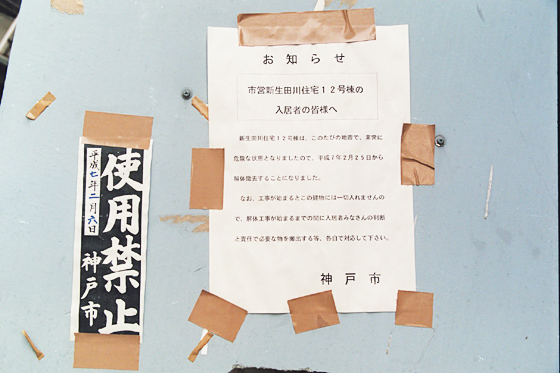 お知らせ
市営新生田川住宅１２号棟の
入居者の皆様へ
新生田川住宅１２号棟は、このたびの地震で、非常に
危険な状態となりましたので、平成７年２月２５日から
解体撤去することになりました。
なお、工事が始まるとこの建物には一切入れませんの
で、解体工事が始まるまでの間に入居者みなさんの判断
と責任で必要な物を搬出する等、各自で対応して下さい。
神戸市
平成七年二月六日
使用禁止
神戸市